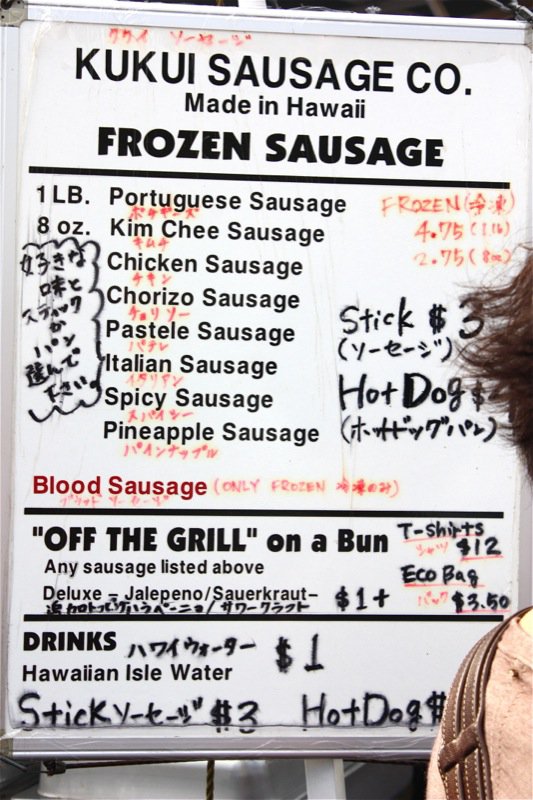 ククイ ソーセージ
KUKUI SAUSAGE CO.
Made in Hawaii
FROZEN SAUSAGE
1 LB. Portuguese Sausage
FROZEN(冷凍)
ポチギーズ
8 oz. Kim Chee Sausage
4.75 (1 lb)
キムチ
Chicken Sausage
2.75 (8oz)
チキン
Chorizo Sausage
チョリソー
Stick $3
Pastele Sausage
(ソーセージ)
パテレ
Italian Sausage
イタリアン
HotDog $
Spicy Sausage
スパイシー
(ホットドッグパン)
Pineapple Sausage
パインナップル
好きな
味と
スティック
か
パン
選んで
下さい。
Blood Sausage (ONLY FROZEN 冷凍のみ)
ブラッド ソーセージ
"OFF THE GRILL" on a Bun
T-shirts
シャツ $12
Any sausage listed above
Eco Bag
Deluxe – Jalepeno/Sauerkraut–
バック $3.50
ハラペーニョ/サワークラフト
$1+
DRINKS ハワイウォーター $1
Hawaiian Isle Water
Stickソーセージ $3 HotDog $